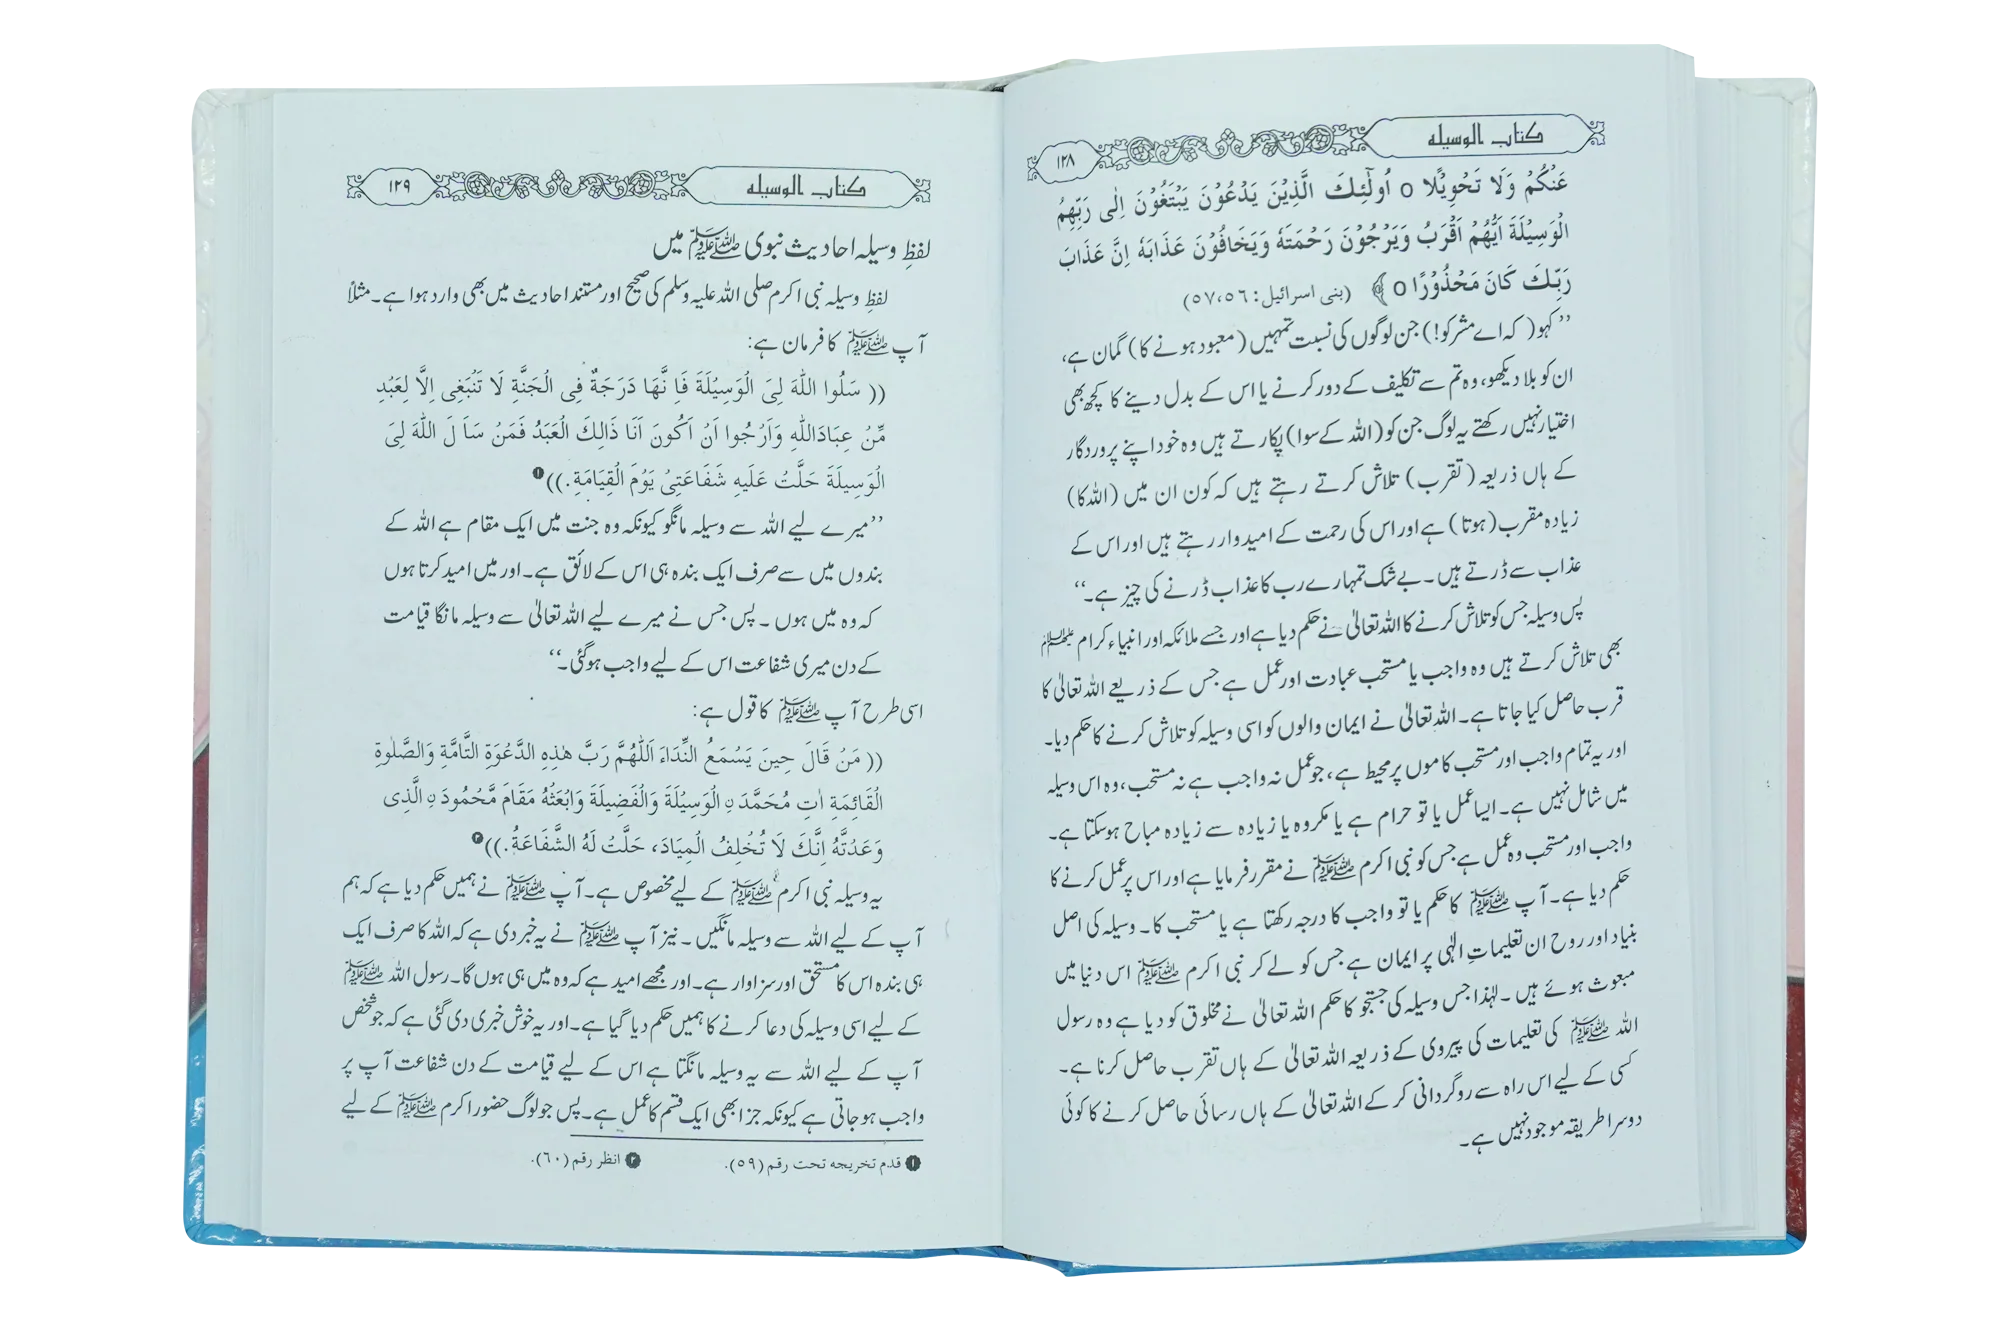 کتاب الوسیلہ
۱۲۸
عَنْکُمْ وَلَا تَحْوِیْلًا o اُولٰٓئِکَ الَّذِیْنَ یَدْعُوْنَ یَبْتَغُوْنَ اِلٰی رَبِّهِمُ
الْوَسِیْلَةَ اَیُّهُمْ اَقْرَبُ وَیَرْجُوْنَ رَحْمَتَهٗ وَیَخَافُوْنَ عَذَابَهٗ اِنَّ عَذَابَ
رَبِّکَ کَانَ مَحْذُوْرًا o﴾ (بنی اسرائیل: ۵۷،۵۶)
’’کہو( کہ اے مشرکو!) جن لوگوں کی نسبت تمہیں (معبود ہونے کا) گمان ہے،
ان کو بلا دیکھو، وہ تم سے تکلیف کے دور کرنے یا اس کے بدل دینے کا کچھ بھی
اختیار نہیں رکھتے یہ لوگ جن کو (اللہ کے سوا) پکارتے ہیں وہ خود اپنے پروردگار
کے ہاں ذریعہ (تقرب) تلاش کرتے رہتے ہیں کہ کون ان میں (اللہ کا)
زیادہ مقرب (ہوتا) ہے اور اس کی رحمت کے امیدوار رہتے ہیں اور اس کے
عذاب سے ڈرتے ہیں۔ بے شک تمہارے رب کا عذاب ڈرنے کی چیز ہے۔‘‘
پس وسیلہ جس کو تلاش کرنے کا اللہ تعالیٰ نے حکم دیا ہے اور جسے ملائکہ اور انبیاء کرام علیہم السلام
بھی تلاش کرتے ہیں وہ واجب یا مستحب عبادت اور عمل ہے جس کے ذریعے اللہ تعالیٰ کا
قرب حاصل کیا جاتا ہے۔ اللہ تعالیٰ نے ایمان والوں کو اسی وسیلہ کو تلاش کرنے کا حکم دیا۔
اور یہ تمام واجب اور مستحب کاموں پر محیط ہے، جو عمل نہ واجب ہے نہ مستحب، وہ اس وسیلہ
میں شامل نہیں ہے۔ ایسا عمل یا تو حرام ہے یا مکروہ یا زیادہ سے زیادہ مباح ہوسکتا ہے۔
واجب اور مستحب وہ عمل ہے جس کو نبی اکرم ﷺ نے مقرر فرمایا ہے اور اس پر عمل کرنے کا
حکم دیا ہے۔ آپ ﷺ کا حکم یا تو واجب کا درجہ رکھتا ہے یا مستحب کا۔ وسیلہ کی اصل
بنیاد اور روح ان تعلیماتِ الٰہی پر ایمان ہے جس کو لے کر نبی اکرم ﷺ اس دنیا میں
مبعوث ہوئے ہیں۔ لہٰذا جس وسیلہ کی جستجو کا حکم اللہ تعالیٰ نے مخلوق کو دیا ہے وہ رسول
اللہ ﷺ کی تعلیمات کی پیروی کے ذریعہ اللہ تعالیٰ کے ہاں تقرب حاصل کرنا ہے۔
کسی کے لیے اس راہ سے روگردانی کر کے اللہ تعالیٰ کے ہاں رسائی حاصل کرنے کا کوئی
دوسرا طریقہ موجود نہیں ہے۔
کتاب الوسیلہ
۱۲۹
لفظِ وسیلہ احادیث نبوی ﷺ میں
لفظِ وسیلہ نبی اکرم صلی اللہ علیہ وسلم کی صحیح اور مستند احادیث میں بھی وارد ہوا ہے۔ مثلاً
آپ ﷺ کا فرمان ہے:
(( سَلُوا اللّٰهَ لِیَ الْوَسِیْلَةَ فَاِ نَّهَا دَرَجَةٌ فِی الْجَنَّةِ لَا تَنْبَغِی اِلَّا لِعَبْدٍ
مِّنْ عِبَادَاللّٰهِ وَاَرْجُوا اَنْ اَکُونَ اَنَا ذَالِكَ الْعَبْدُ فَمَنْ سَاَ لَ اللّٰهَ لِیَ
الْوَسِیلَةَ حَلَّتْ عَلَیهِ شَفَاعَتِیْ یَوْمَ الْقِیَامَةِ.))❶
’’میرے لیے اللہ سے وسیلہ مانگو کیونکہ وہ جنت میں ایک مقام ہے اللہ کے
بندوں میں سے صرف ایک بندہ ہی اس کے لائق ہے۔ اور میں امید کرتا ہوں
کہ وہ میں ہوں ۔ پس جس نے میرے لیے اللہ تعالیٰ سے وسیلہ مانگا قیامت
کے دن میری شفاعت اس کے لیے واجب ہوگئی۔‘‘
اسی طرح آپ ﷺ کا قول ہے:
(( مَنْ قَالَ حِینَ یَسْمَعُ النِّدَاءَ اَللّٰهُمَّ رَبَّ هٰذِهِ الدَّعْوَةِ التَّامَّةِ وَالصَّلٰوةِ
الْقَائِمَةِ اٰتِ مُحَمَّدَ نِ الْوَسِیْلَةَ وَالْفَضِیلَةَ وَابْعَثْهُ مَقَامَ مَّحْمُودَ نِ الَّذِی
وَعَدْتَّهُ اِنَّكَ لَا تُخْلِفُ الْمِیَادَ، حَلَّتْ لَهُ الشَّفَاعَةُ.))❷
یہ وسیلہ نبی اکرم ﷺ کے لیے مخصوص ہے۔ آپ ﷺ نے ہمیں حکم دیا ہے کہ ہم
آپ کے لیے اللہ سے وسیلہ مانگیں۔ نیز آپ ﷺ نے یہ خبر دی ہے کہ اللہ کا صرف ایک
ہی بندہ اس کا مستحق اور سزاوار ہے۔ اور مجھے امید ہے کہ وہ میں ہی ہوں گا۔ رسول اللہ ﷺ
کے لیے اسی وسیلہ کی دعا کرنے کا ہمیں حکم دیا گیا ہے۔ اور یہ خوش خبری دی گئی ہے کہ جو شخص
آپ کے لیے اللہ سے یہ وسیلہ مانگتا ہے اس کے لیے قیامت کے دن شفاعت آپ پر
واجب ہو جاتی ہے کیونکہ جزا بھی ایک قسم کا عمل ہے۔ پس جو لوگ حضور اکرم ﷺ کے لیے
❶ قدم تخریجه تحت رقم (٥٩).
❷ انظر رقم (٦٠).